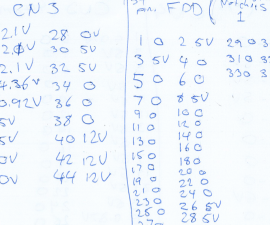 CN 3
2.1V 28 0V
2.0V 30 5V
2.1V 32 5V
4.36V 34 0
0.92V 36 0
5V 38 0
5V 40 12V
0V 42 12V
0V 44 12V
FDD (
1
1 0 2 5V 29 0 3
3 5V 4 0 31 0 3
5 0 6 0 33 0 3
7 0 8 5V
9 0 10 0
11 0 12 0
13 0 14 0
15 0 16 0
17 0 18 0
19 0 20 0
21 0 22 0
23 0 24 0
25 0 26 5V
27 0 28 5V